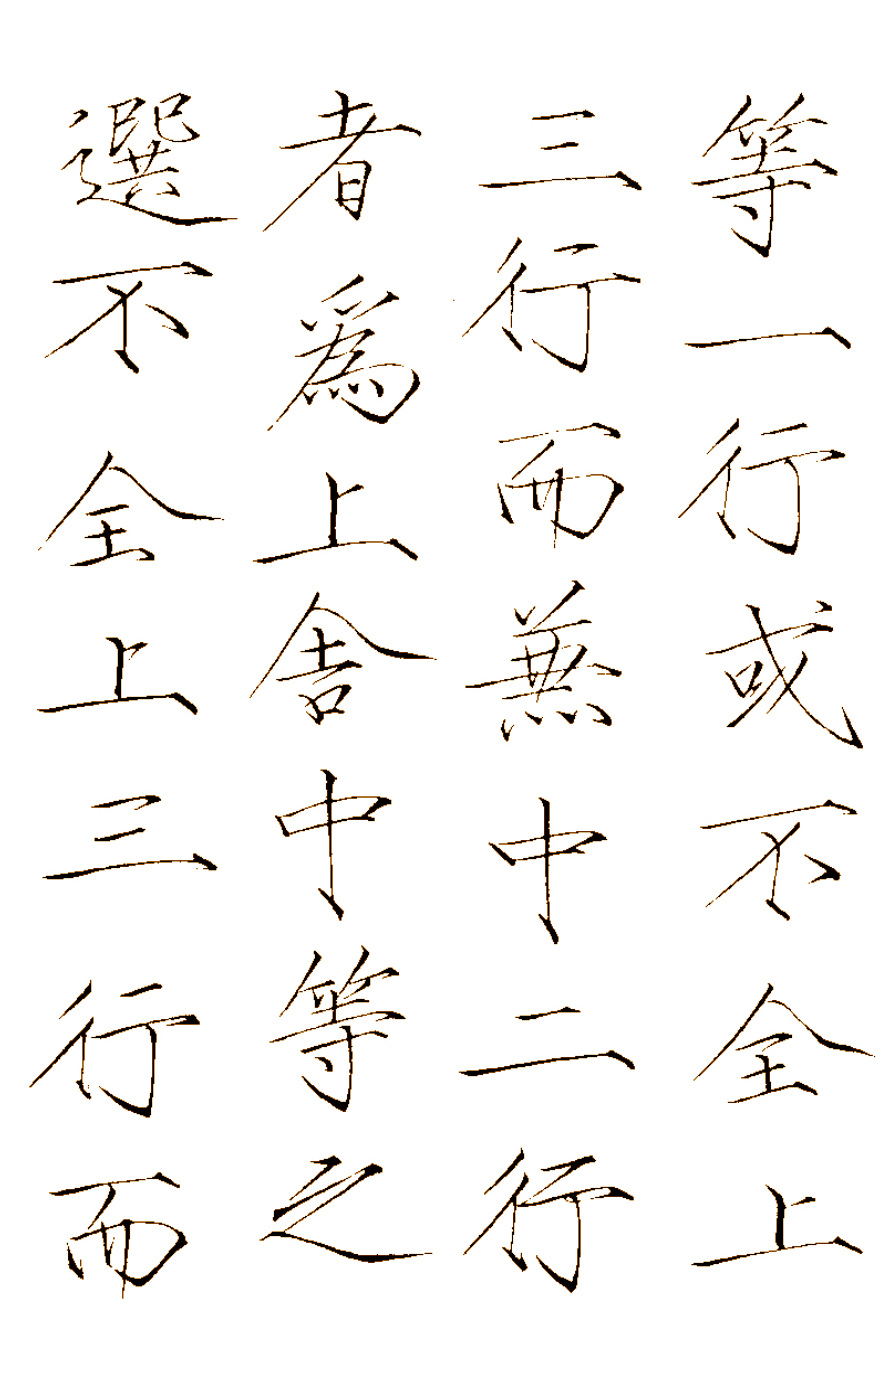 等一行或不全上
三行而無中二行
者爲上舍中等之
選不全上三行而